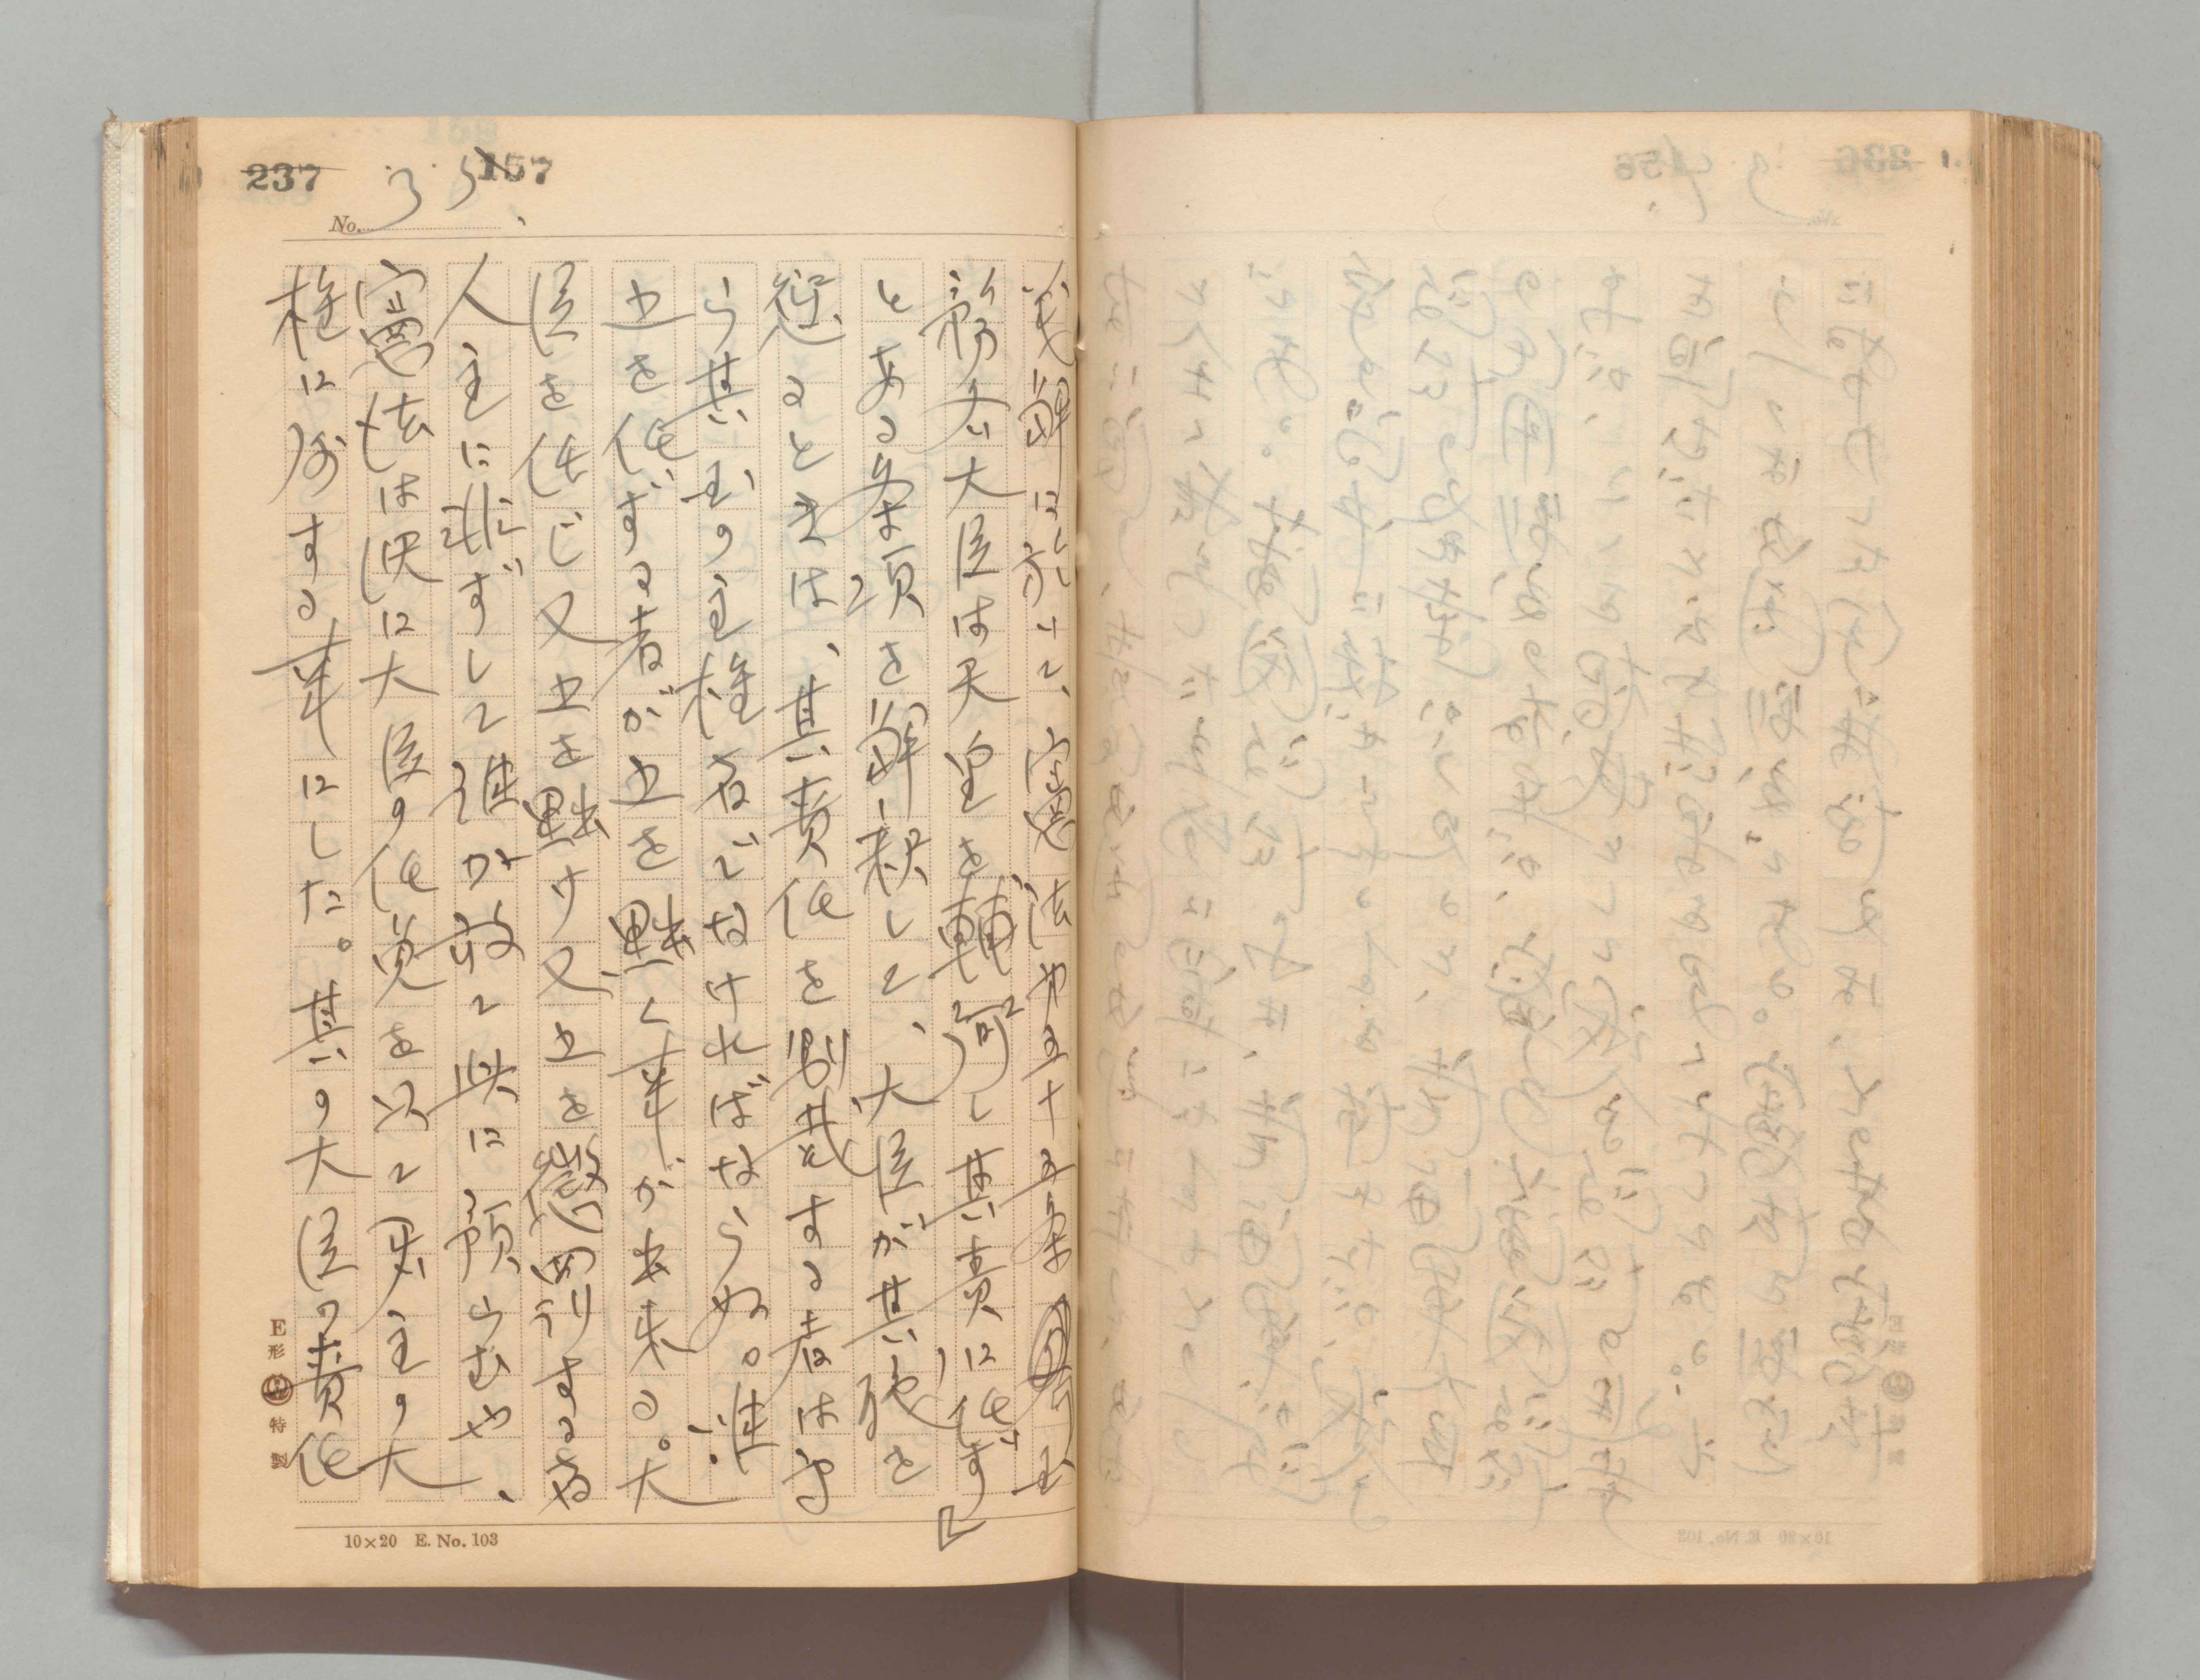 237
157
No. 35
義解に於いて、憲法第五十五条国
務各大臣は天皇を輔弼し其責に任ず」
とある条項を解釈して、大臣が其職を
愆るときは、其責任を別裁する者は専
ら其国の主権者でなければならぬ。唯
之を任ずる者が之を黜く事が出来る。大
臣を任じ又之を黜け又之を懲罰する者
人主に非ずして誰か敢て此に預らむや、
憲法は既に大臣の任免を以て君主の大
権に属する事にした。其の大臣の責任
E形 特製
10×20 E. No. 103